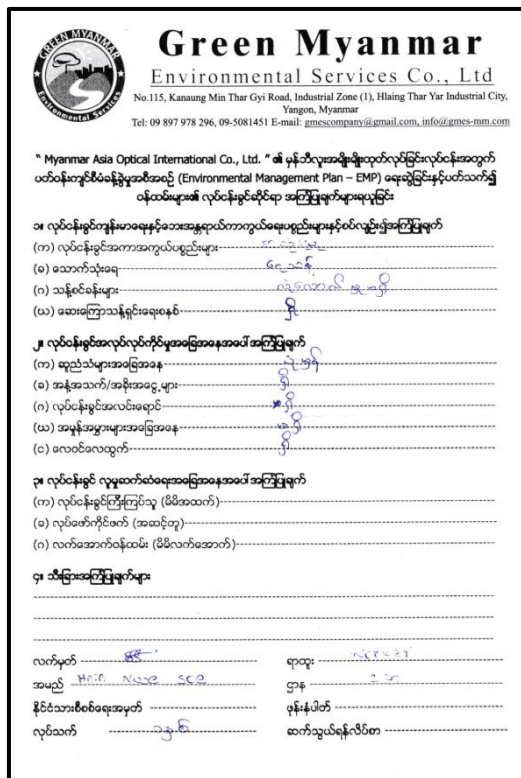 GREEN MYANMAR
Environmental Services
Green Myanmar
Environmental Services Co., Ltd
No.115, Kanaung Min Thar Gyi Road, Industrial Zone (1), Hlaing Thar Yar Industrial City,
Yangon, Myanmar
Tel: 09 897 978 296, 09-5081451 E-mail: gmescompany@gmail.com, info@gmes-mm.com
" Myanmar Asia Optical International Co., Ltd. " ၏ မှန်ဘီလူးအမျိုးမျိုးထုတ်လုပ်ခြင်းလုပ်ငန်းအတွက်
ပတ်ဝန်းကျင်စီမံခန့်ခွဲမှုအစီအစဉ် (Environmental Management Plan – EMP) ရေးဆွဲခြင်းနှင့်ပတ်သက်၍
ဝန်ထမ်းများ၏ လုပ်ငန်းခွင်ဆိုင်ရာ အကြံပြုချက်များရယူခြင်း
၁။ လုပ်ငန်းခွင်ကျန်းမာရေးနှင့်ဘေးအန္တရာယ်ကာကွယ်ရေးပစ္စည်းများနှင့်စပ်လျဉ်း၍အကြံပြုချက်
(က) လုပ်ငန်းခွင်အကာအကွယ်ပစ္စည်းများ
(ခ) သောက်သုံးရေ ရေသန့်
(ဂ) သန့်စင်ခန်းများ လုံလောက်မှု မရှိ
(ဃ) ဆေးကြောသန့်ရှင်းရေးစနစ် ရှိ
၂။ လုပ်ငန်းခွင်အလုပ်လုပ်ကိုင်မှုအခြေအနေအပေါ်အကြံပြုချက်
(က) ဆူညံသံများအခြေအနေ ပုံမှန်
(ခ) အနံ့အသက်/အခိုးအငွေ့များ ရှိ
(ဂ) လုပ်ငန်းခွင်အလင်းရောင် ရှိ
(ဃ) အမှုန်အမွှားများအခြေအနေ မရှိ
(င) လေဝင်လေထွက် ရှိ
၃။ လုပ်ငန်းခွင် လူမှုဆက်ဆံရေးအခြေအနေအပေါ်အကြံပြုချက်
(က) လုပ်ငန်းခွင်ကြီးကြပ်သူ (မိမိအထက်)
(ခ) လုပ်ဖော်ကိုင်ဖက် (အဆင့်တူ)
(ဂ) လက်အောက်ဝန်ထမ်း (မိမိလက်အောက်)
၄။ သီးခြားအကြံပြုချက်များ
လက်မှတ် ရာထူး
အမည် Hnin ဌာန
နိုင်ငံသားစီစစ်ရေးအမှတ် ဖုန်းနံပါတ်
လုပ်သက် ၁ နှစ် ဆက်သွယ်ရန်လိပ်စာ